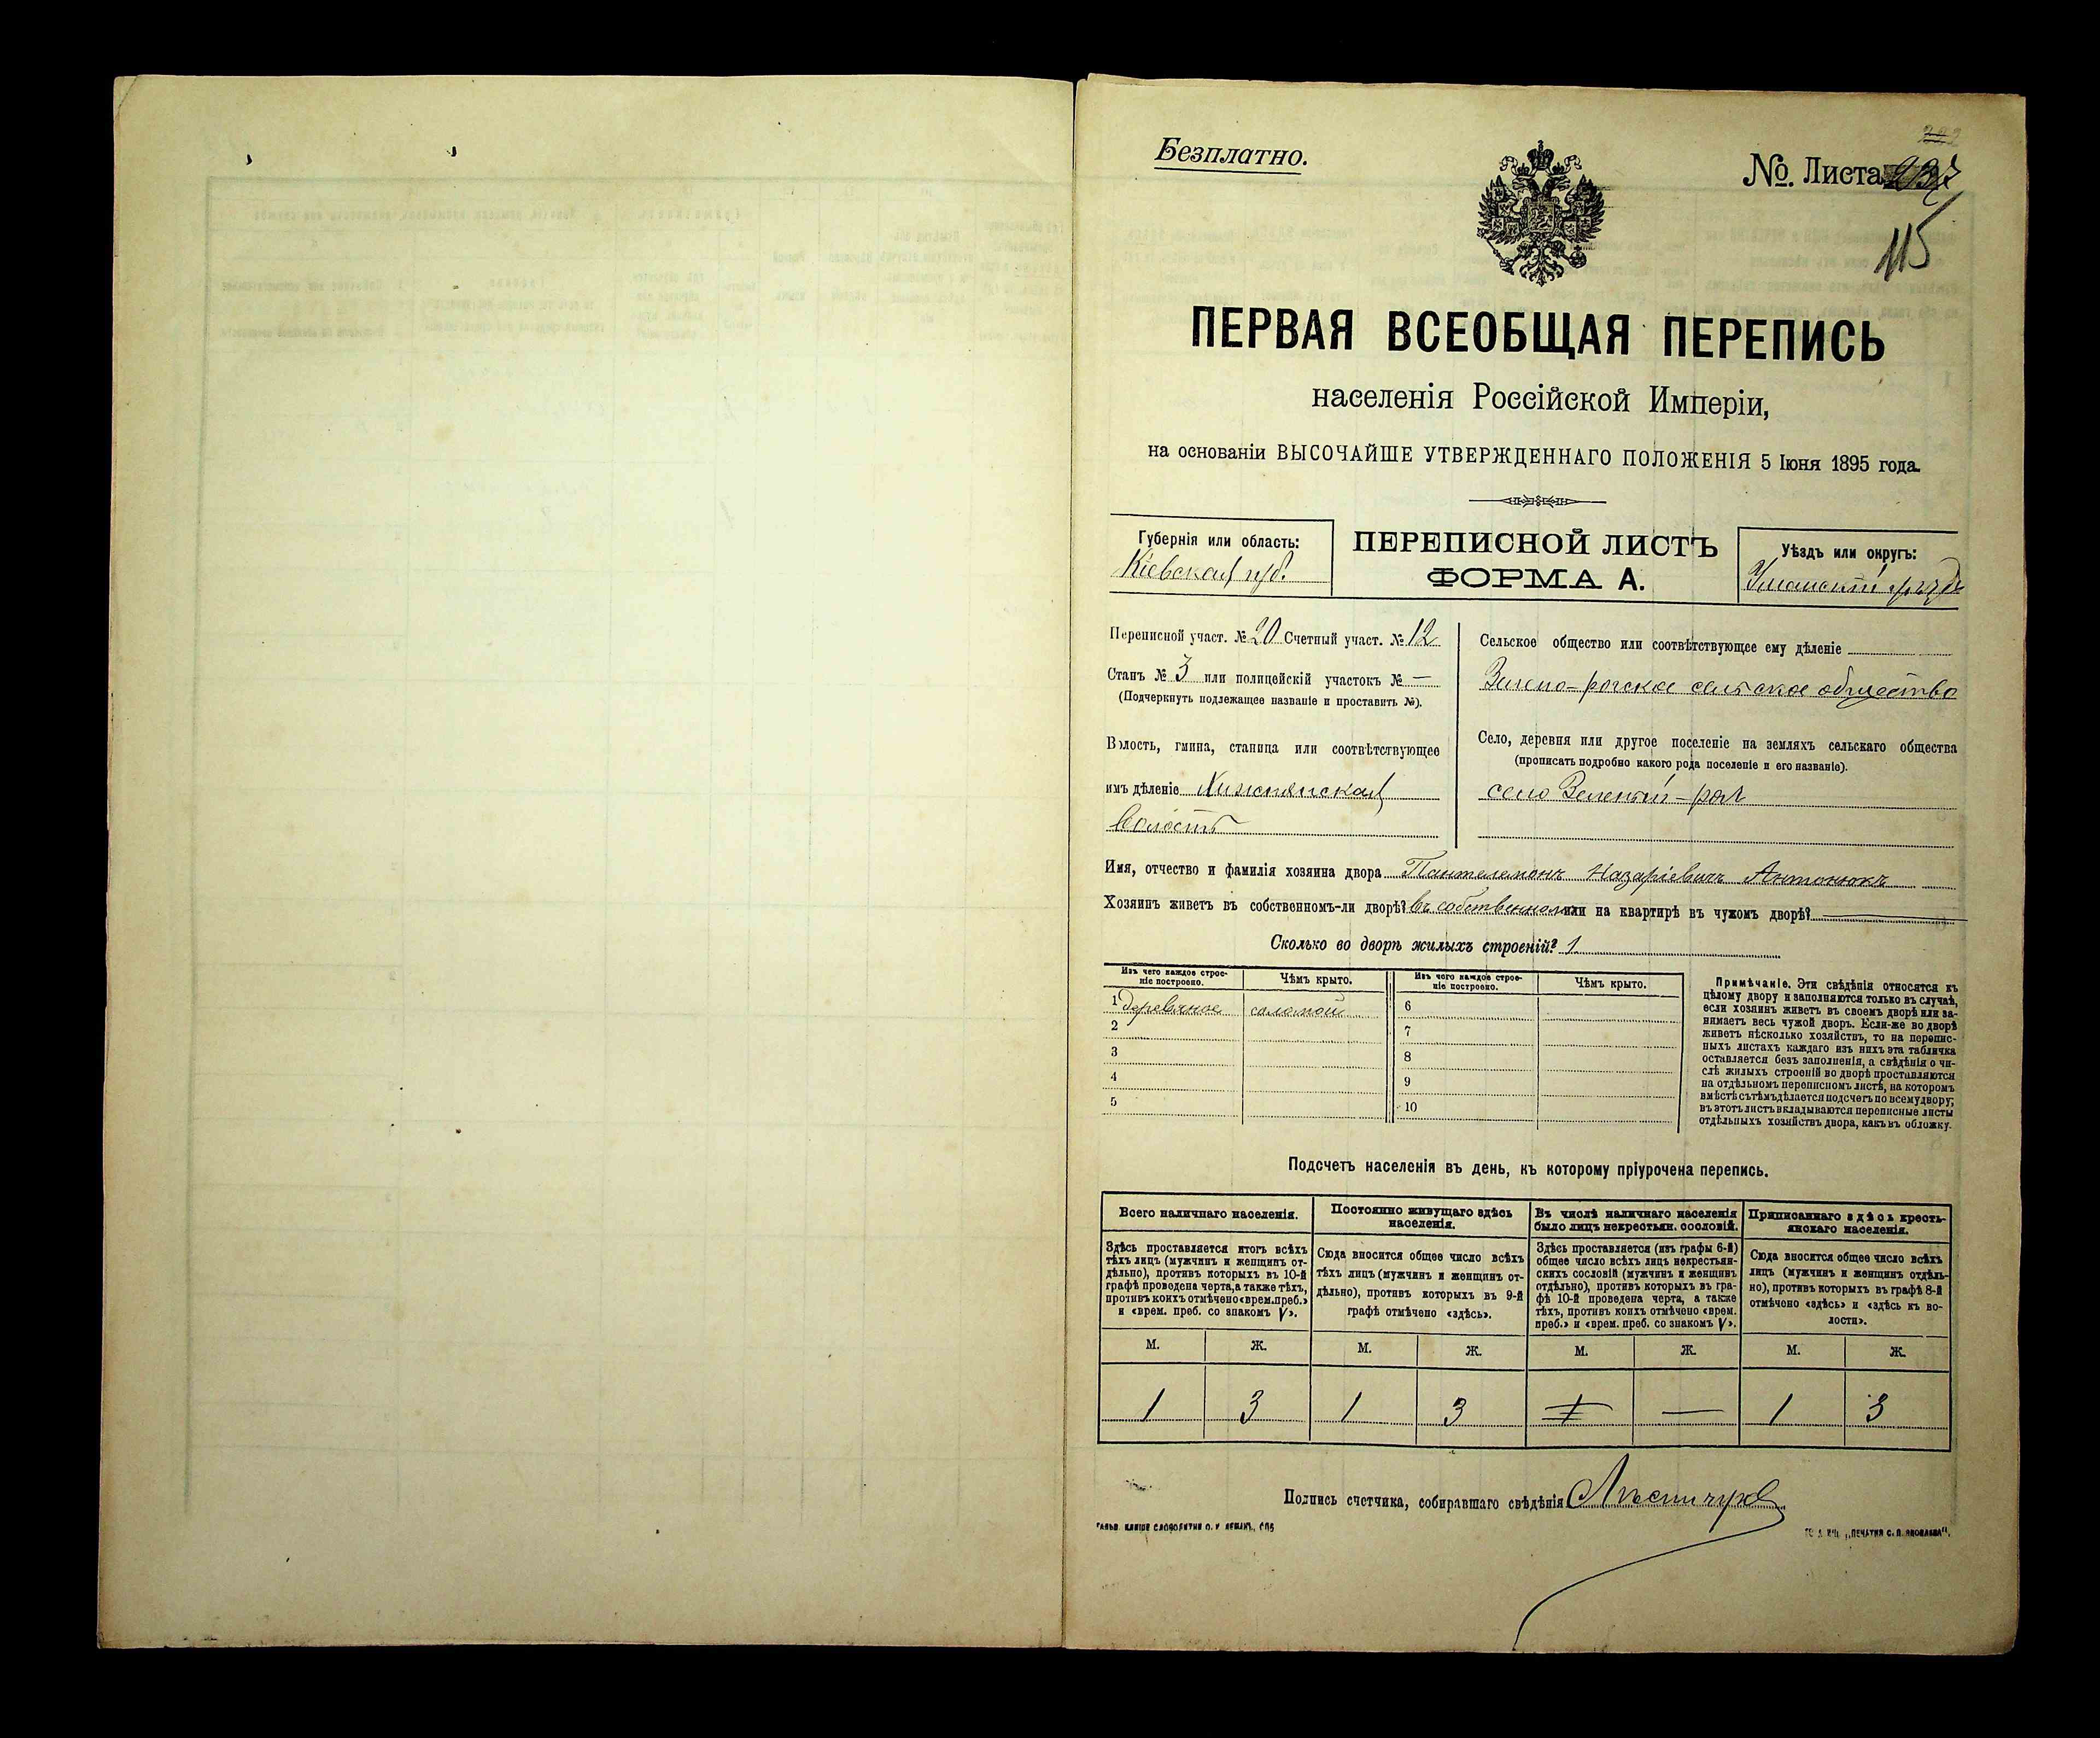 Безплатно.
№. Листа
115
ПЕРВАЯ ВСЕОБЩАЯ ПЕРЕПИСЬ
населенія Россійской Имперіи,
на основаніи ВЫСОЧАЙШЕ УТВЕРЖДЕННАГО ПОЛОЖЕНІЯ 5 Іюня 1895 года.
Губернія или область:
Кіевская губ.
ПЕРЕПИСНОЙ ЛИСТЪ
ФОРМА А.
Уѣздъ или округъ:
Уманскій уѣздъ
Переписной участ. № 20 Счетный участ. № 12
Станъ № 3 или полицейскій участокъ № —
(Подчеркнуть подлежащее названіе и проставить №).
Волость, гмина, станица или соотвѣтствующее
имъ дѣленіе
волость
Сельское общество или соотвѣтствующее ему дѣленіе
Зелено-рогское сельское общество
Село, деревня или другое поселеніе на земляхъ сельскаго общества
(прописать подробно какого рода поселеніе и его названіе).
село Зеленый-рогъ
Имя, отчество и фамилія хозяина двора Пантелемонъ Назаріевичъ Антонюкъ
Хозяинъ живетъ въ собственномъ-ли дворѣ? въ собственномъ или на квартирѣ въ чужомъ дворѣ? —
Сколько во дворѣ жилыхъ строеній? 1.
Изъ чего каждое строе-
ніе построено.
Чѣмъ крыто.
Изъ чего каждое строе-
ніе построено.
Чѣмъ крыто.
1 деревяное соломой
2
3
4
5
6
7
8
9
10
Примѣчаніе. Эти свѣдѣнія относятся къ
цѣлому двору и заполняются только въ случаѣ,
если хозяинъ живетъ въ своемъ дворѣ или за-
нимаетъ весь чужой дворъ. Если-же во дворѣ
живетъ нѣсколько хозяйствъ, то на перепис-
ныхъ листахъ каждаго изъ нихъ эта табличка
оставляется безъ заполненія, а свѣдѣнія о чи-
слѣ жилыхъ строеній во дворѣ проставляются
на отдѣльномъ переписномъ листѣ, на которомъ
вмѣстѣ съ тѣмъ дѣлается подсчетъ по всему двору;
въ этотъ листъ вкладываются переписные листы
отдѣльныхъ хозяйствъ двора, какъ въ обложку.
Подсчетъ населенія въ день, къ которому пріурочена перепись.
Всего наличнаго населенія.
Здѣсь проставляется итогъ всѣхъ
тѣхъ лицъ (мужчинъ и женщинъ от-
дѣльно), противъ которыхъ въ 10-й
графѣ проведена черта, а также тѣхъ,
противъ коихъ отмѣчено «врем. преб.»
и «врем. преб. со знакомъ V».
Постоянно живущаго здѣсь
населенія.
Сюда вносится общее число всѣхъ
тѣхъ лицъ (мужчинъ и женщинъ от-
дѣльно), противъ которыхъ въ 9-й
графѣ отмѣчено «здѣсь».
Въ числѣ наличнаго населенія
было лицъ некрестьян. сословій.
Здѣсь проставляется (изъ графы 6-й)
общее число всѣхъ лицъ некрестьян-
скихъ сословій (мужчинъ и женщинъ
отдѣльно), противъ которыхъ въ гра-
фѣ 10-й проведена черта, а также
тѣхъ, противъ коихъ отмѣчено «врем.
преб.» и «врем. преб. со знакомъ V».
Приписаннаго здѣсь кресть-
янскаго населенія.
Сюда вносится общее число всѣхъ
лицъ (мужчинъ и женщинъ отдѣль-
но), противъ которыхъ въ графѣ 8-й
отмѣчено «здѣсь» и «здѣсь къ во-
лости».
М. Ж. М. Ж. М. Ж. М. Ж.
1 3 1 3 — 1 3
Подпись счетчика, собиравшаго свѣдѣнія